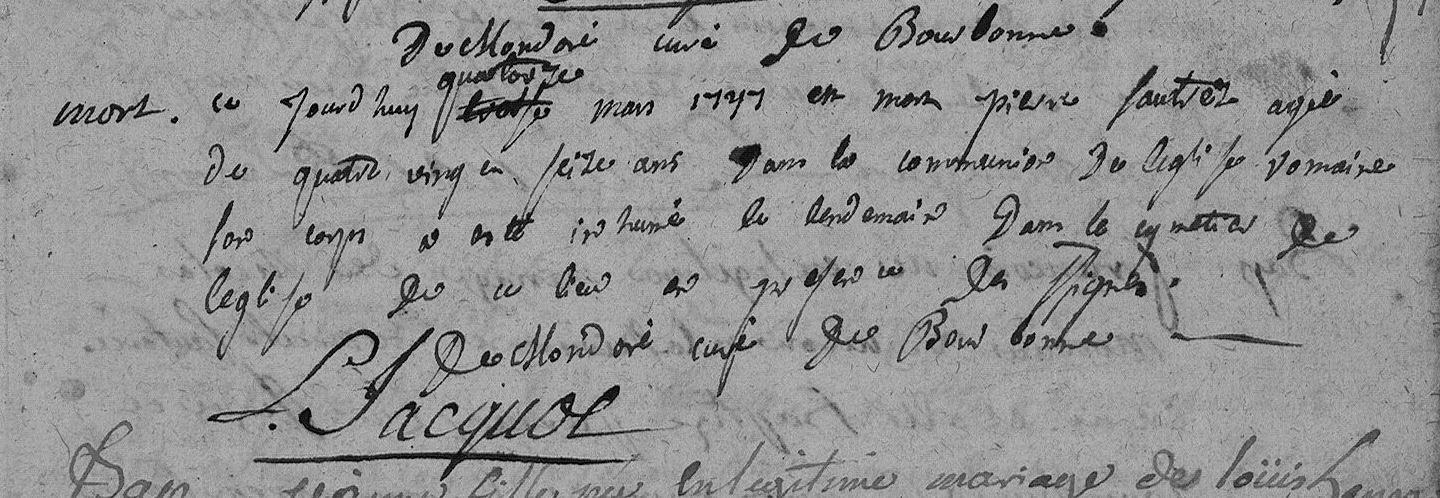 De Mondoré curé de Bourbonne
quatorze
mort. ce jourdhuy treise mars 1747 est mort pierre sautrez agé
de quatre vingt en seize ans Dans la communion De leglise romaine
son corps a esté inhumé le lendemain Dans le cymetier de
leglise de ce lieu en presence des signés.
De Mondoré curé de Bourbonne
L. Jacquot
en legitime mariage de loüis